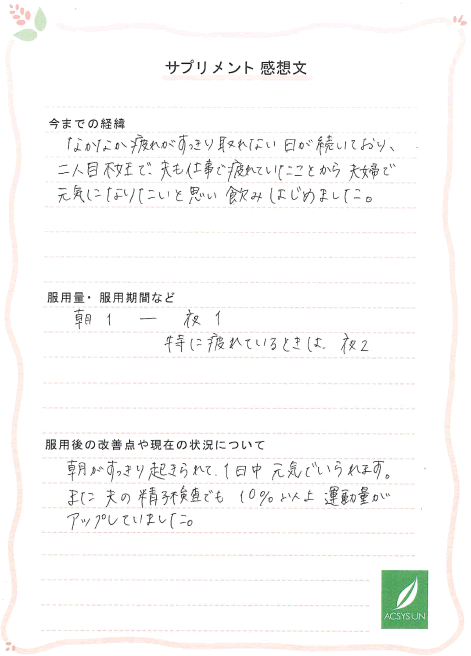 サプリメント 感想文
今までの経緯
なかなか疲れがすっきり取れない日が続いており、
二人目不妊で、夫も仕事で疲れていたことから 夫婦で
元気になりたいと思い 飲みはじめました。
服用量・服用期間など
朝 1 ー 夜 1
特に疲れているときは、夜2
服用後の改善点や現在の状況について
朝がすっきり起きられて、1日中 元気でいられます。
また 夫の 精子検査でも 10%以上 運動量が
アップしていました。
ACSYSUN